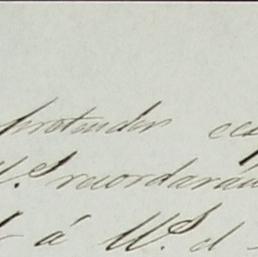 pretenden
V.S. recordarán
á V.S. el